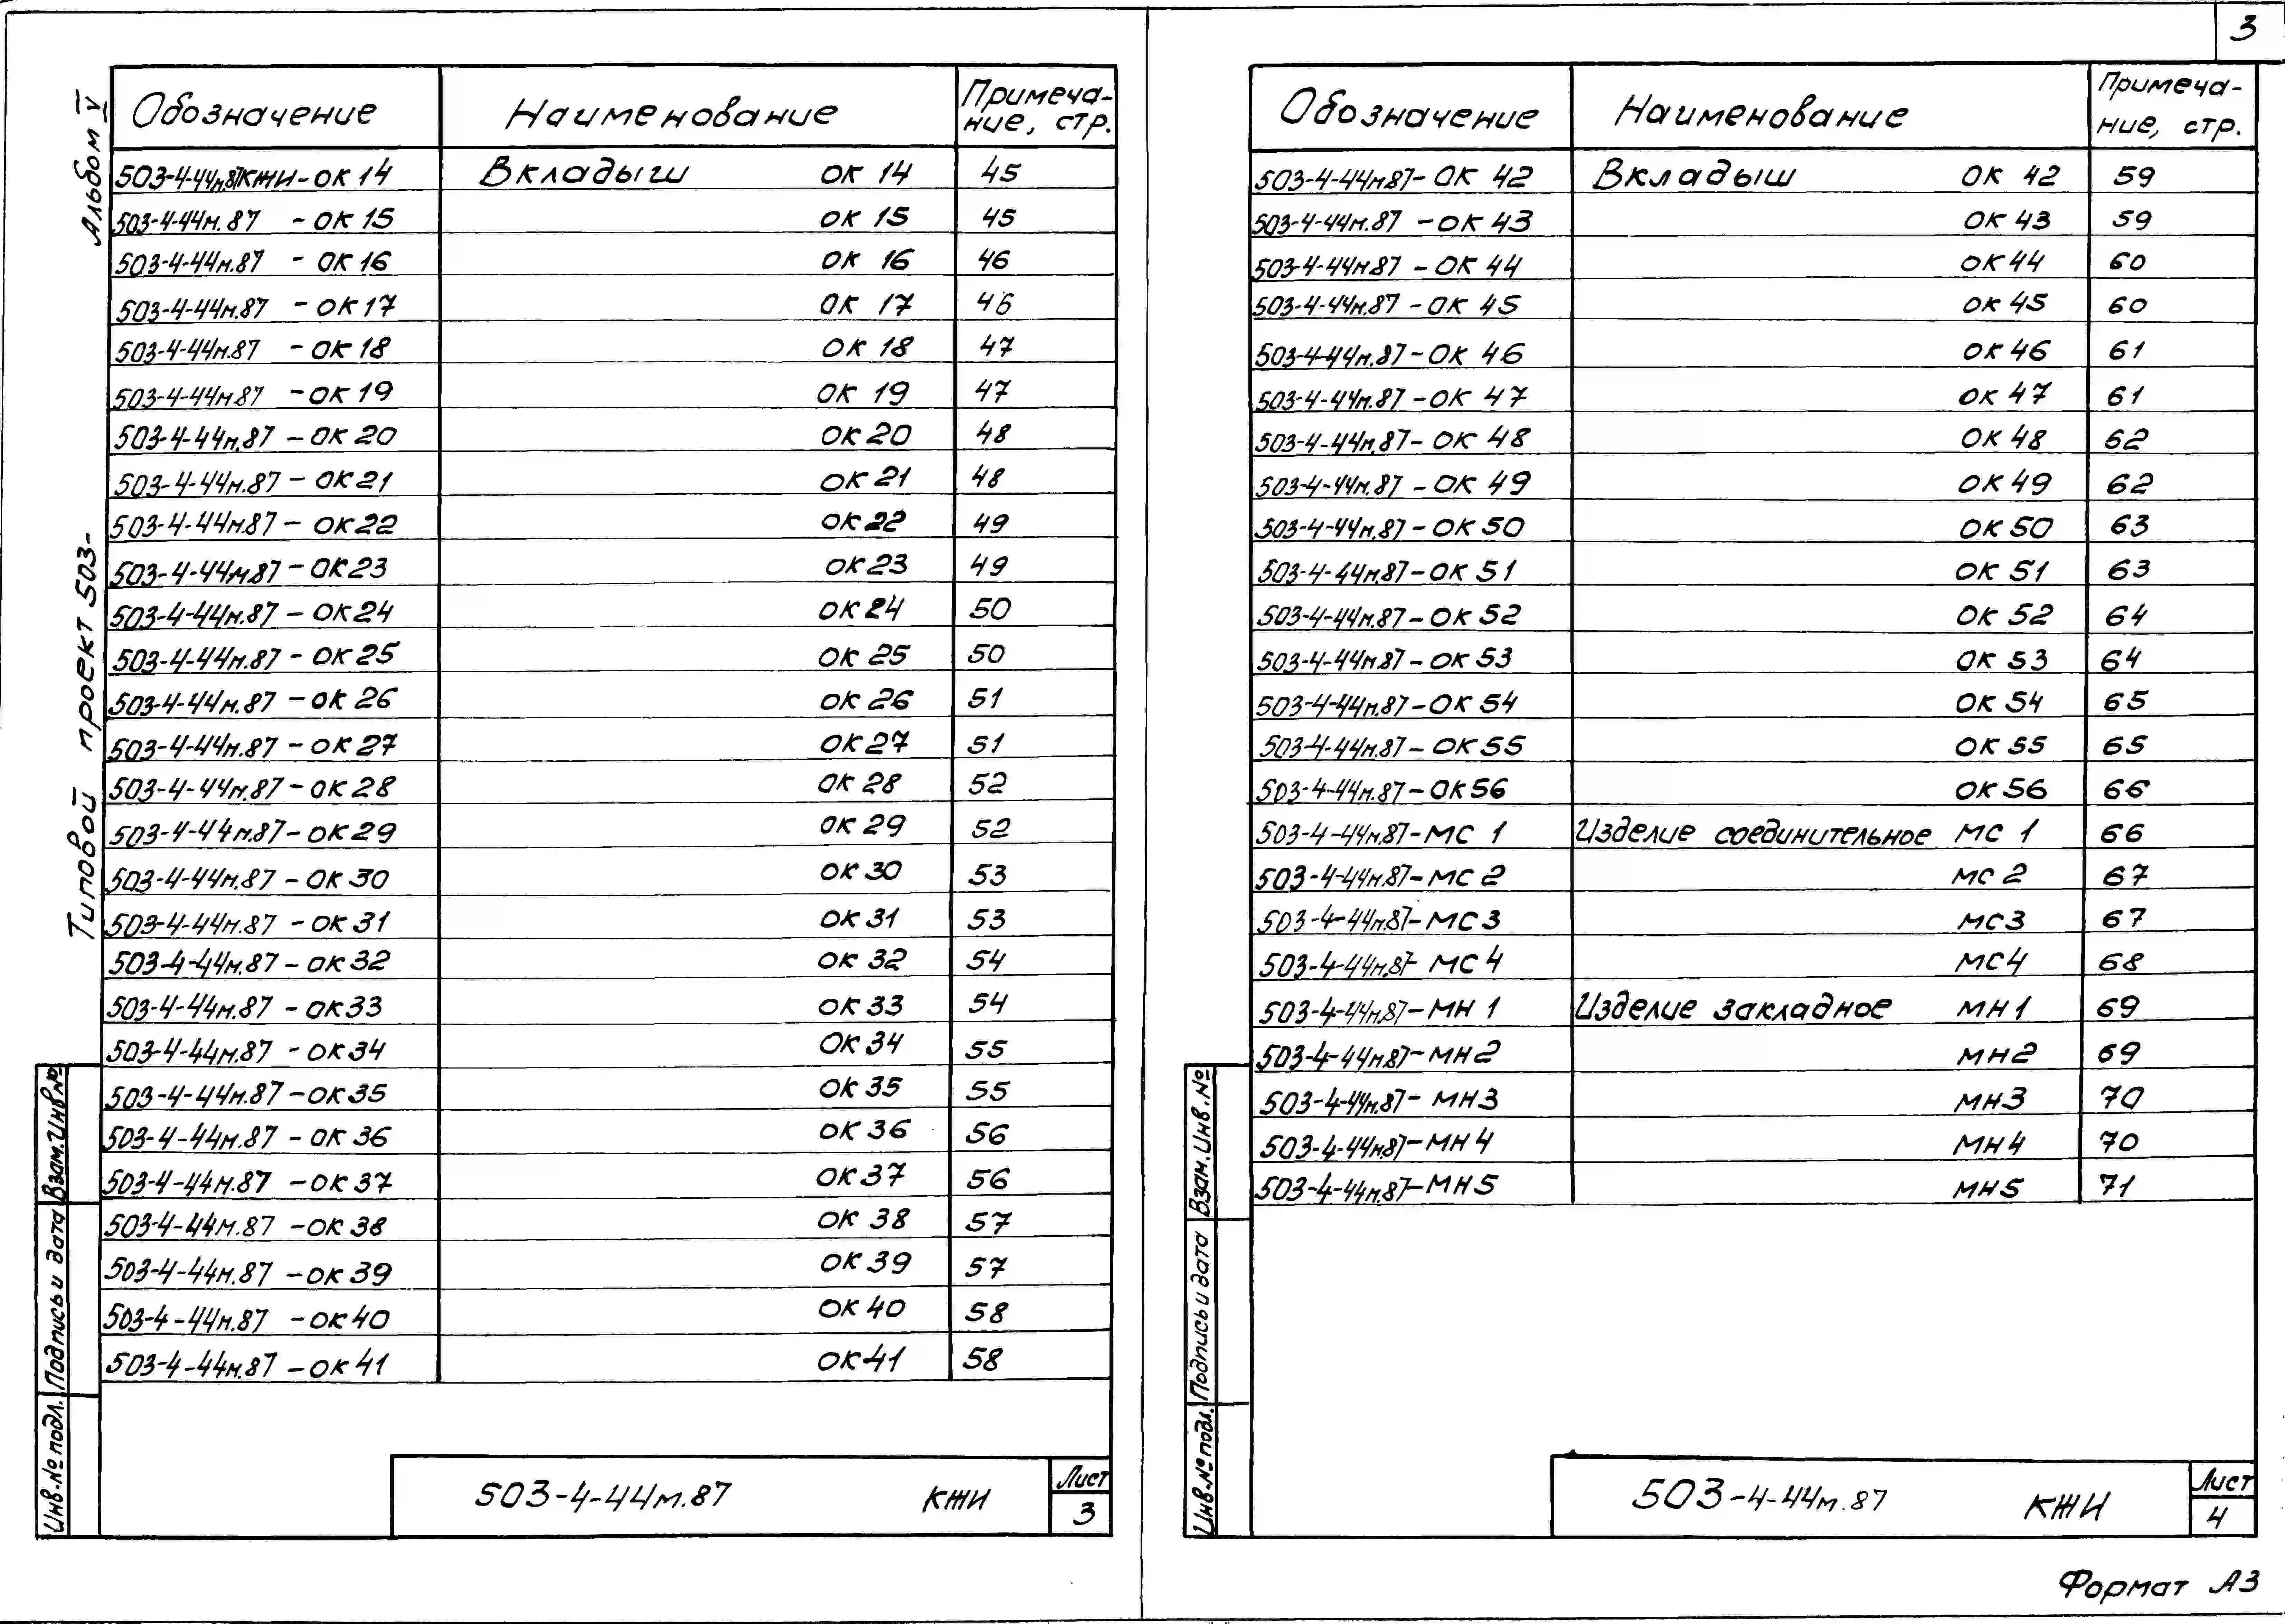 3
Альбом V
Типовой проект 503-
Обозначение Наименование Примеча-
ние, стр.
503-4-44м.87КЖИ-ОК 14 Вкладыш ОК 14 45
503-4-44м.87 -ОК 15 ОК 15 45
503-4-44м.87 - ОК 16 ОК 16 46
503-4-44м.87 -ОК 17 ОК 17 46
503-4-44м.87 -ОК 18 ОК 18 47
503-4-44м87 -ОК 19 ОК 19 47
503-4-44м.87 -ОК 20 ОК 20 48
503-4-44м.87 - ОК 21 ОК 21 48
503-4-44м.87 - ОК 22 ОК 22 49
503-4-44м.87 - ОК 23 ОК 23 49
503-4-44м.87 - ОК 24 ОК 24 50
503-4-44м.87 - ОК 25 ОК 25 50
503-4-44м.87 - ОК 26 ОК 26 51
503-4-44м.87 - ОК 27 ОК 27 51
503-4-44м.87 - ОК 28 ОК 28 52
503-4-44м.87 - ОК 29 ОК 29 52
503-4-44м.87 - ОК 30 ОК 30 53
503-4-44м.87 - ОК 31 ОК 31 53
503-4-44м.87 - ОК 32 ОК 32 54
503-4-44м.87 - ОК 33 ОК 33 54
503-4-44м.87 - ОК 34 ОК 34 55
503-4-44м.87 -ОК 35 ОК 35 55
503-4-44м.87 - ОК 36 ОК 36 56
503-4-44м.87 -ОК 37 ОК 37 56
503-4-44м.87 -ОК 38 ОК 38 57
503-4-44м.87 -ОК 39 ОК 39 57
503-4-44м.87 -ОК 40 ОК 40 58
503-4-44м.87 -ОК 41 ОК 41 58
Взам.Инв.№
Подпись и дата
Инв.№ подл.
503-4-44м.87 КЖИ Лист
3
Обозначение Наименование Примеча-
ние, стр.
503-4-44м.87- ОК 42 Вкладыш ОК 42 59
503-4-44м.87 -ОК 43 ОК 43 59
503-4-44м87 -ОК 44 ОК 44 60
503-4-44м.87 -ОК 45 ОК 45 60
503-4-44м.87-ОК 46 ОК 46 61
503-4-44м.87 -ОК 47 ОК 47 61
503-4-44м.87- ОК 48 ОК 48 62
503-4-44м.87 -ОК 49 ОК 49 62
503-4-44м.87-ОК 50 ОК 50 63
503-4-44м.87-ОК 51 ОК 51 63
503-4-44м.87-ОК 52 ОК 52 64
503-4-44м.87-ОК 53 ОК 53 64
503-4-44м.87-ОК 54 ОК 54 65
503-4-44м.87- ОК 55 ОК 55 65
503-4-44м.87-ОК 56 ОК 56 66
503-4-44м.87-МС 1 Изделие соединительное МС 1 66
503-4-44м.87-МС 2 МС 2 67
503-4-44м.87-МС 3 МС 3 67
503-4-44м.87- МС 4 МС 4 68
503-4-44м.87-МН 1 Изделие закладное МН 1 69
503-4-44м87-МН 2 МН 2 69
503-4-44м.87- МН 3 МН 3 70
503-4-44м.87-МН 4 МН 4 70
503-4-44м.87-МН 5 МН 5 71
Взам.Инв.№
Подпись и дата
Инв.№ подл.
503-4-44м.87 КЖИ Лист
4
Формат А3